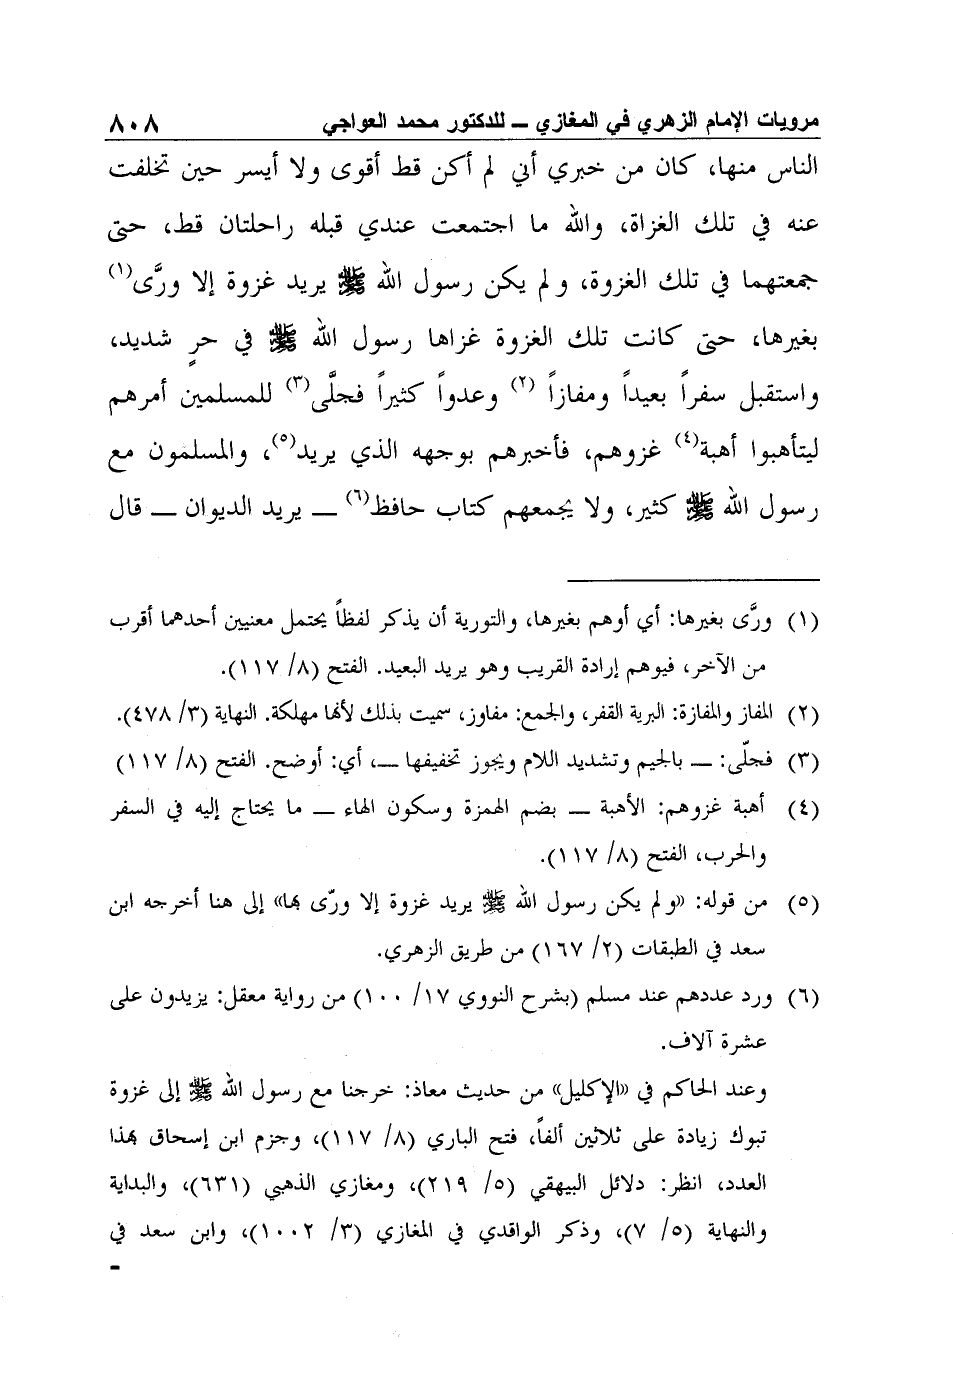 مرويات الإمام الزهري في المغازي ــ للدكتور محمد العواجي ٨٠٨
الناس منها، كان من خبري أني لم أكن قط أقوى ولا أيسر حين تخلفت
عنه في تلك الغزاة، والله ما اجتمعت عندي قبله راحلتان قط، حتى
جمعتهما في تلك الغزوة، ولم يكن رسول الله ﷺ يريد غزوة إلا ورَّى(١)
بغيرها، حتى كانت تلك الغزوة غزاها رسول الله ﷺ في حرٍ شديد،
واستقبل سفراً بعيداً ومفازاً (٢) وعدواً كثيراً فجلَّى(٣) للمسلمين أمرهم
ليتأهبوا أهبة(٤) غزوهم، فأخبرهم بوجهه الذي يريد(٥)، والمسلمون مع
رسول الله ﷺ كثير، ولا يجمعهم كتاب حافظ(٦) ــ يريد الديوان ــ قال
(١) ورَّى بغيرها: أي أوهم بغيرها، والتورية أن يذكر لفظاً يحتمل معنيين أحدهما أقرب
من الآخر، فيوهم إرادة القريب وهو يريد البعيد. الفتح (٨/ ١١٧).
(٢) المفاز والمفازة: البرية القفر، والجمع: مفاوز، سميت بذلك لأنها مهلكة. النهاية (٣/ ٤٧٨).
(٣) فجلّى: ــ بالجيم وتشديد اللام ويجوز تخفيفها ــ، أي: أوضح. الفتح (٨/ ١١٧)
(٤) أهبة غزوهم: الأهبة ــ بضم الهمزة وسكون الهاء ــ ما يحتاج إليه في السفر
والحرب، الفتح (٨/ ١١٧).
(٥) من قوله: «ولم يكن رسول الله ﷺ يريد غزوة إلا ورّى بها» إلى هنا أخرجه ابن
سعد في الطبقات (٢/ ١٦٧) من طريق الزهري.
(٦) ورد عددهم عند مسلم (بشرح النووي ١٧/ ١٠٠) من رواية معقل: يزيدون على
عشرة آلاف.
وعند الحاكم في «الإكليل» من حديث معاذ: خرجنا مع رسول الله ﷺ إلى غزوة
تبوك زيادة على ثلاثين ألفاً، فتح الباري (٨/ ١١٧)، وجزم ابن إسحاق بهذا
العدد، انظر: دلائل البيهقي (٥/ ٢١٩)، ومغازي الذهبي (٦٣١)، والبداية
والنهاية (٥/ ٧)، وذكر الواقدي في المغازي (٣/ ١٠٠٢)، وابن سعد في
=